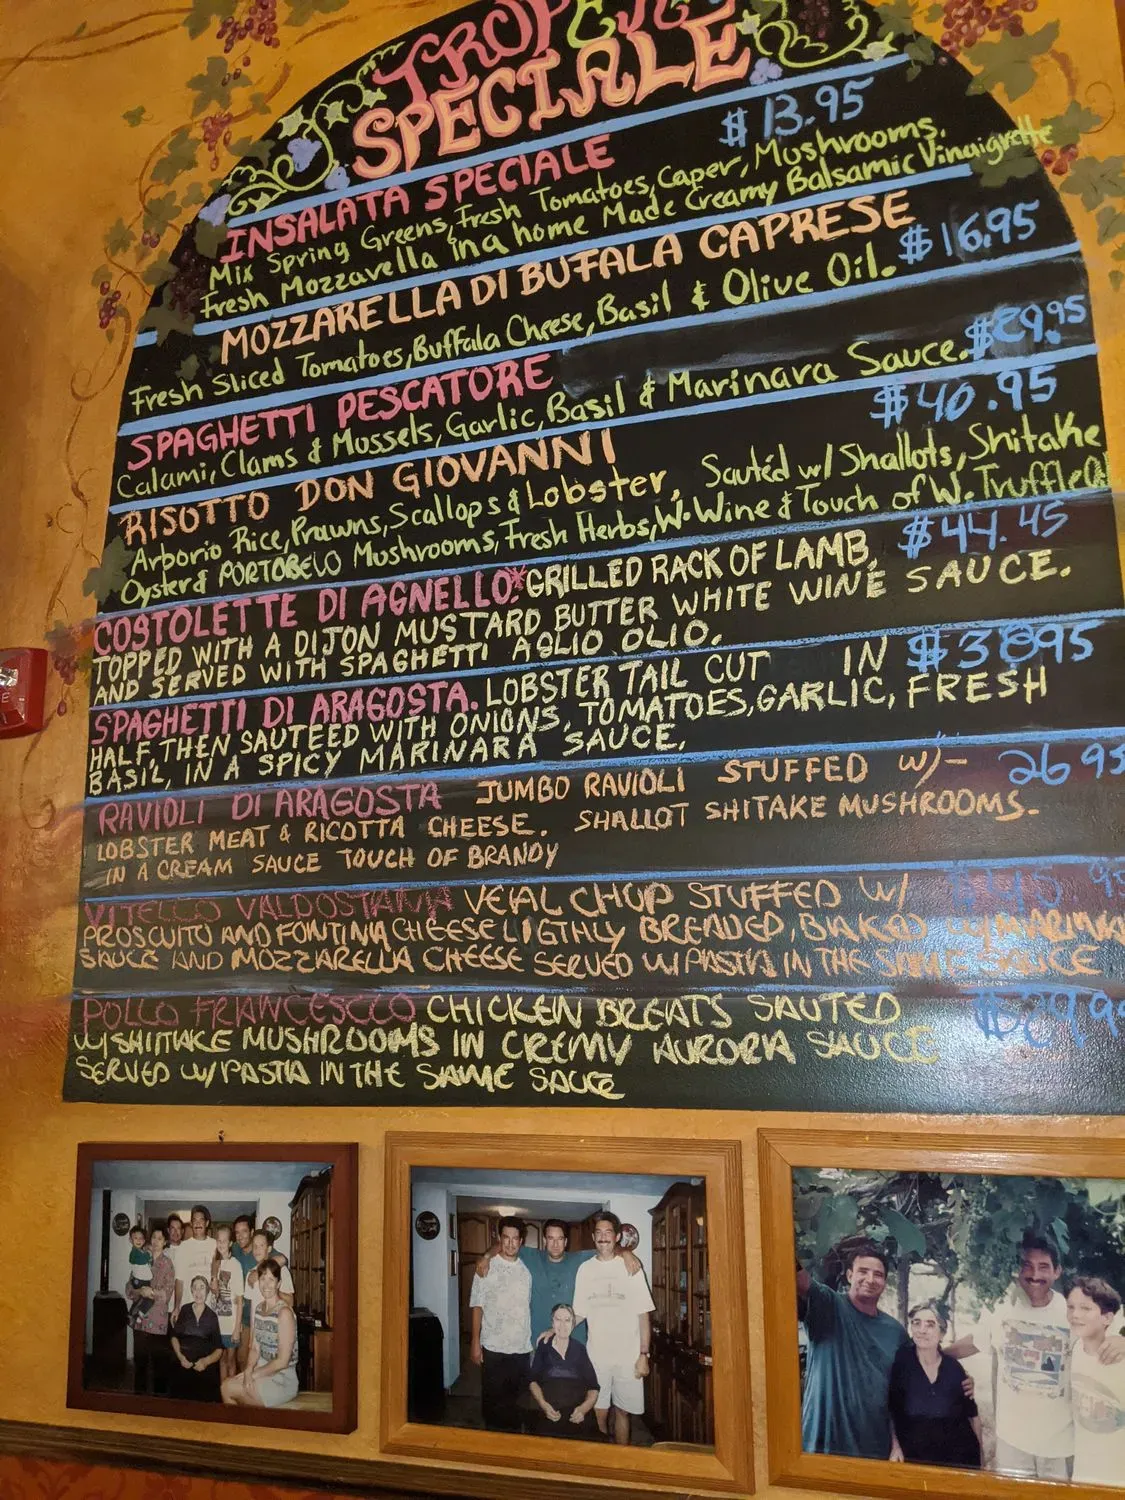 SPECIALE
INSALATA SPECIALE $13.95
Mix Spring Greens, Fresh Tomatoes, Caper, Mushrooms.
Fresh Mozzarella in a home Made Creamy Balsamic Vinaigrette
MOZZARELLA DI BUFALA CAPRESE $16.95
Fresh Sliced Tomatoes, Buffala Cheese, Basil & Olive Oil.
SPAGHETTI PESCATORE $29.95
Calami, Clams & Mussels, Garlic, Basil & Marinara Sauce.
RISOTTO DON GIOVANNI $40.95
Arborio Rice, Prawns, Scallops & Lobster, Sautéd w/ Shallots, Shitake
Oyster & PORTOBELO Mushrooms, Fresh Herbs, W. Wine & Touch of W. Truffle Oil
COSTOLETTE DI AGNELLO.* GRILLED RACK OF LAMB, $44.45
TOPPED WITH A DIJON MUSTARD BUTTER WHITE WINE SAUCE.
AND SERVED WITH SPAGHETTI AGLIO OLIO.
SPAGHETTI DI ARAGOSTA. LOBSTER TAIL CUT IN $38.95
HALF, THEN SAUTEED WITH ONIONS, TOMATOES, GARLIC, FRESH
BASIL, IN A SPICY MARINARA SAUCE.
RAVIOLI DI ARAGOSTA JUMBO RAVIOLI STUFFED w/- 26 95
LOBSTER MEAT & RICOTTA CHEESE. SHALLOT SHITAKE MUSHROOMS.
IN A CREAM SAUCE TOUCH OF BRANDY
VITELLO VALDOSTANA VEAL CHOP STUFFED W/ $45.95
PROSCUITO AND FONTINA CHEESE LIGTHLY BREADED, BAKED W/ MARINARA
SAUCE AND MOZZARELLA CHEESE SERVED W/ PASTA IN THE SAME SAUCE
POLLO FRANCESCO CHICKEN BREATS SAUTED $29.9
W/ SHITAKE MUSHROOMS IN CREMY AURORA SAUCE
SERVED W/ PASTA IN THE SAME SAUCE